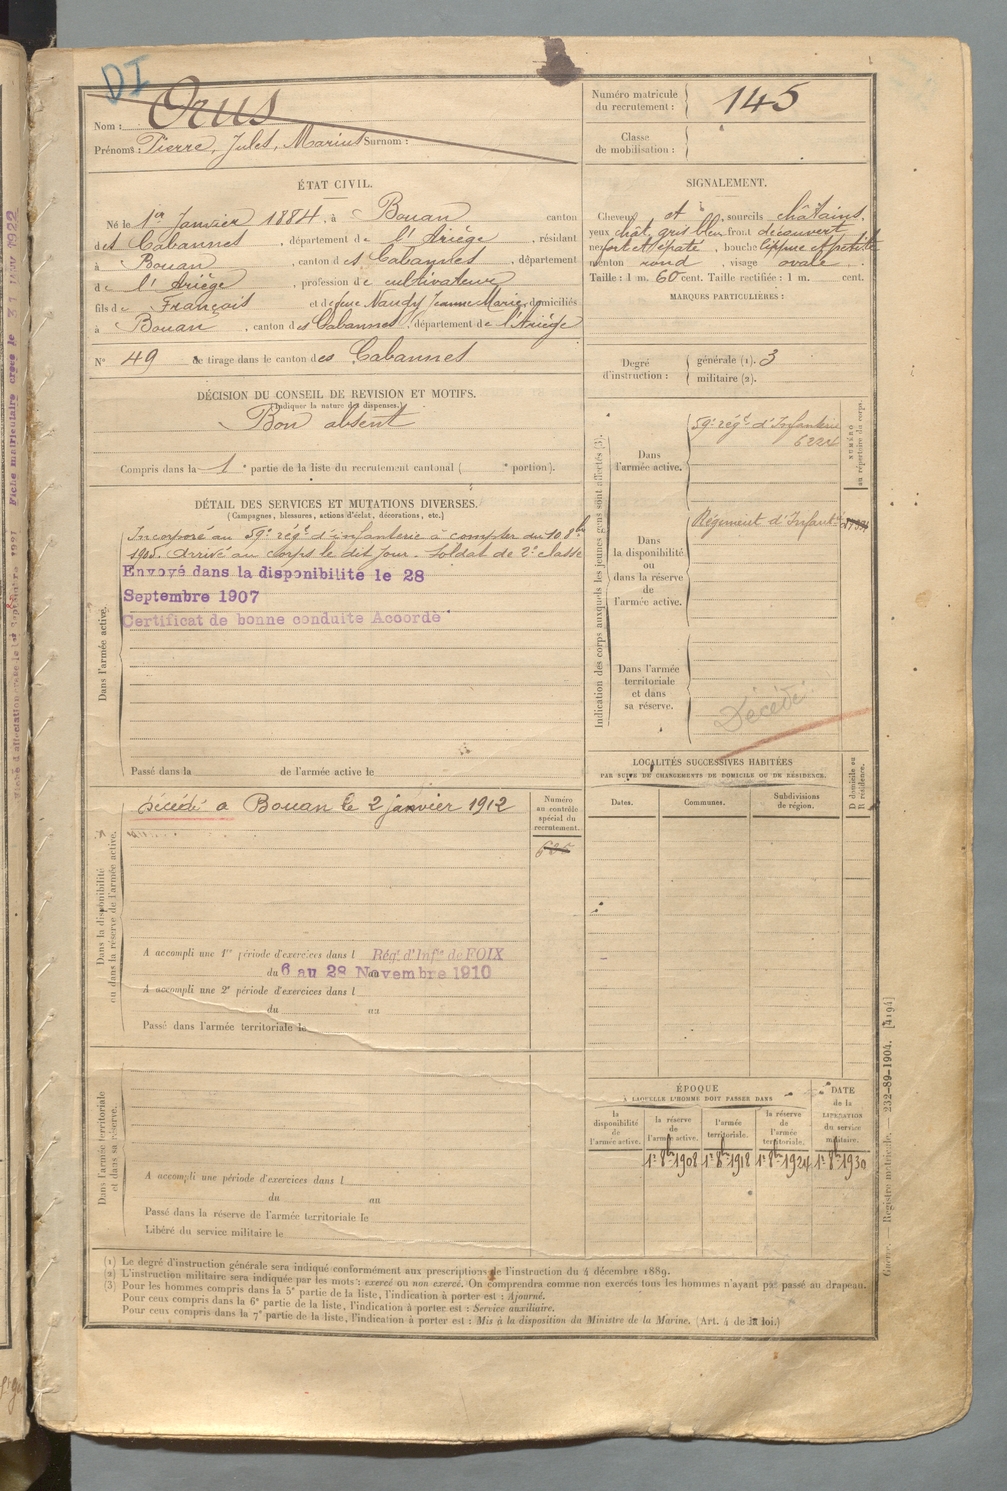 DI
Nom : Orus
Prénoms : Pierre, Jules, Marius Surnom :
Numéro matricule du recrutement : 145
Classe de mobilisation :
ÉTAT CIVIL.
Né le 1er Janvier 1884, à Bouan canton
des Cabannes, département de l'Ariège, résidant
à Bouan, canton des Cabannes, département
de l'Ariège, profession de cultivateur
fils de François et de feue Naudy Jeanne Marie, domiciliés
à Bouan, canton des Cabannes, département de l'Ariège
N° 49 de tirage dans le canton des Cabannes
SIGNALEMENT.
Cheveux et sourcils châtains.
yeux chât. gris bleu front découvert
nez fort et épaté, bouche lippue et petite
menton rond, visage ovale.
Taille : 1 m. 60 cent. Taille rectifiée : 1 m. cent.
MARQUES PARTICULIÈRES :
Degré d'instruction :
générale (1). 3
militaire (2).
DÉCISION DU CONSEIL DE REVISION ET MOTIFS.
(Indiquer la nature des dispenses.)
Bon absent
Compris dans la 1e partie de la liste du recrutement cantonal ( e portion).
DÉTAIL DES SERVICES ET MUTATIONS DIVERSES.
(Campagnes, blessures, actions d'éclat, décorations, etc.)
Dans l'armée active.
Incorporé au 59e régt d'infanterie à compter du 10 8bre
1905. Arrivé au corps le dit jour. Soldat de 2e classe
Envoyé dans la disponibilité le 28
Septembre 1907
Certificat de bonne conduite Accordé
Passé dans la de l'armée active le
Indication des corps auxquels les jeunes gens sont affectés (3).
NUMÉRO au répertoire du corps.
Dans l'armée active.
59e régt d'Infanterie
Dans la disponibilité ou dans la réserve de l'armée active.
Régiment d'Infant
Dans l'armée territoriale et dans sa réserve.
Décédé
Dans la disponibilité ou dans la réserve de l'armée active.
Décédé à Bouan le 2 janvier 1912
Numéro au contrôle spécial du recrutement.
A accompli une 1re période d'exercices dans l Régt d'Infie de FOIX
du 6 au 28 Novembre 1910
A accompli une 2e période d'exercices dans l
du au
Passé dans l'armée territoriale le
LOCALITÉS SUCCESSIVES HABITÉES
PAR SUITE DE CHANGEMENTS DE DOMICILE OU DE RÉSIDENCE.
Dates.
Communes.
Subdivisions de région.
D domicile ou R résidence.
Dans l'armée territoriale et dans sa réserve.
A accompli une période d'exercices dans l
du au
Passé dans la réserve de l'armée territoriale le
Libéré du service militaire le
ÉPOQUE
À LAQUELLE L'HOMME DOIT PASSER DANS
la disponibilité de l'armée active.
la réserve de l'armée active.
l'armée territoriale.
la réserve de l'armée territoriale.
DATE de la LIBÉRATION du service militaire.
1er 8bre 1908
1er 8bre 1918
1er 8bre 1924
1er 8bre 1930
(1) Le degré d'instruction générale sera indiqué conformément aux prescriptions de l'instruction du 4 décembre 1889.
(2) L'instruction militaire sera indiquée par les mots : exercé ou non exercé. On comprendra comme non exercés tous les hommes n'ayant pas passé au drapeau.
(3) Pour les hommes compris dans la 5e partie de la liste, l'indication à porter est : Ajourné.
Pour ceux compris dans la 6e partie de la liste, l'indication à porter est : Service auxiliaire.
Pour ceux compris dans la 7e partie de la liste, l'indication à porter est : Mis à la disposition du Ministre de la Marine. (Art. 4 de la loi.)
Guerre. — Registre matricule. — 232-89-1904. [4194]